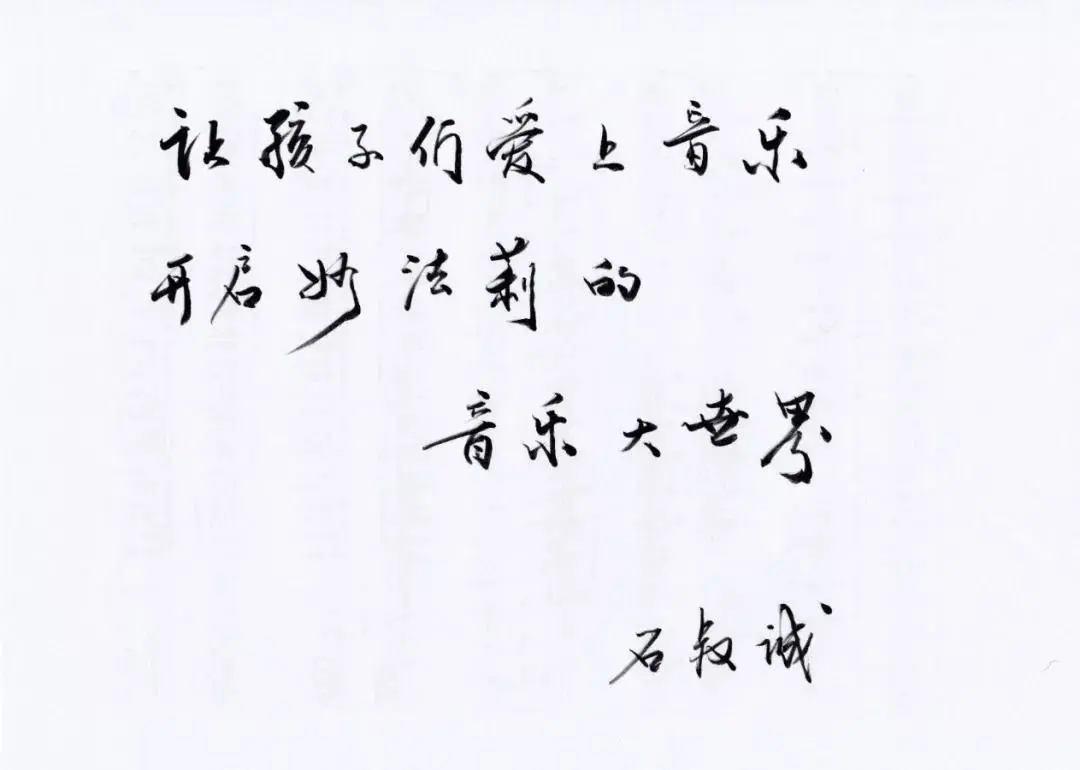 让孩子们爱上音乐
开启妙法莉的
音乐大世界
石叔诚